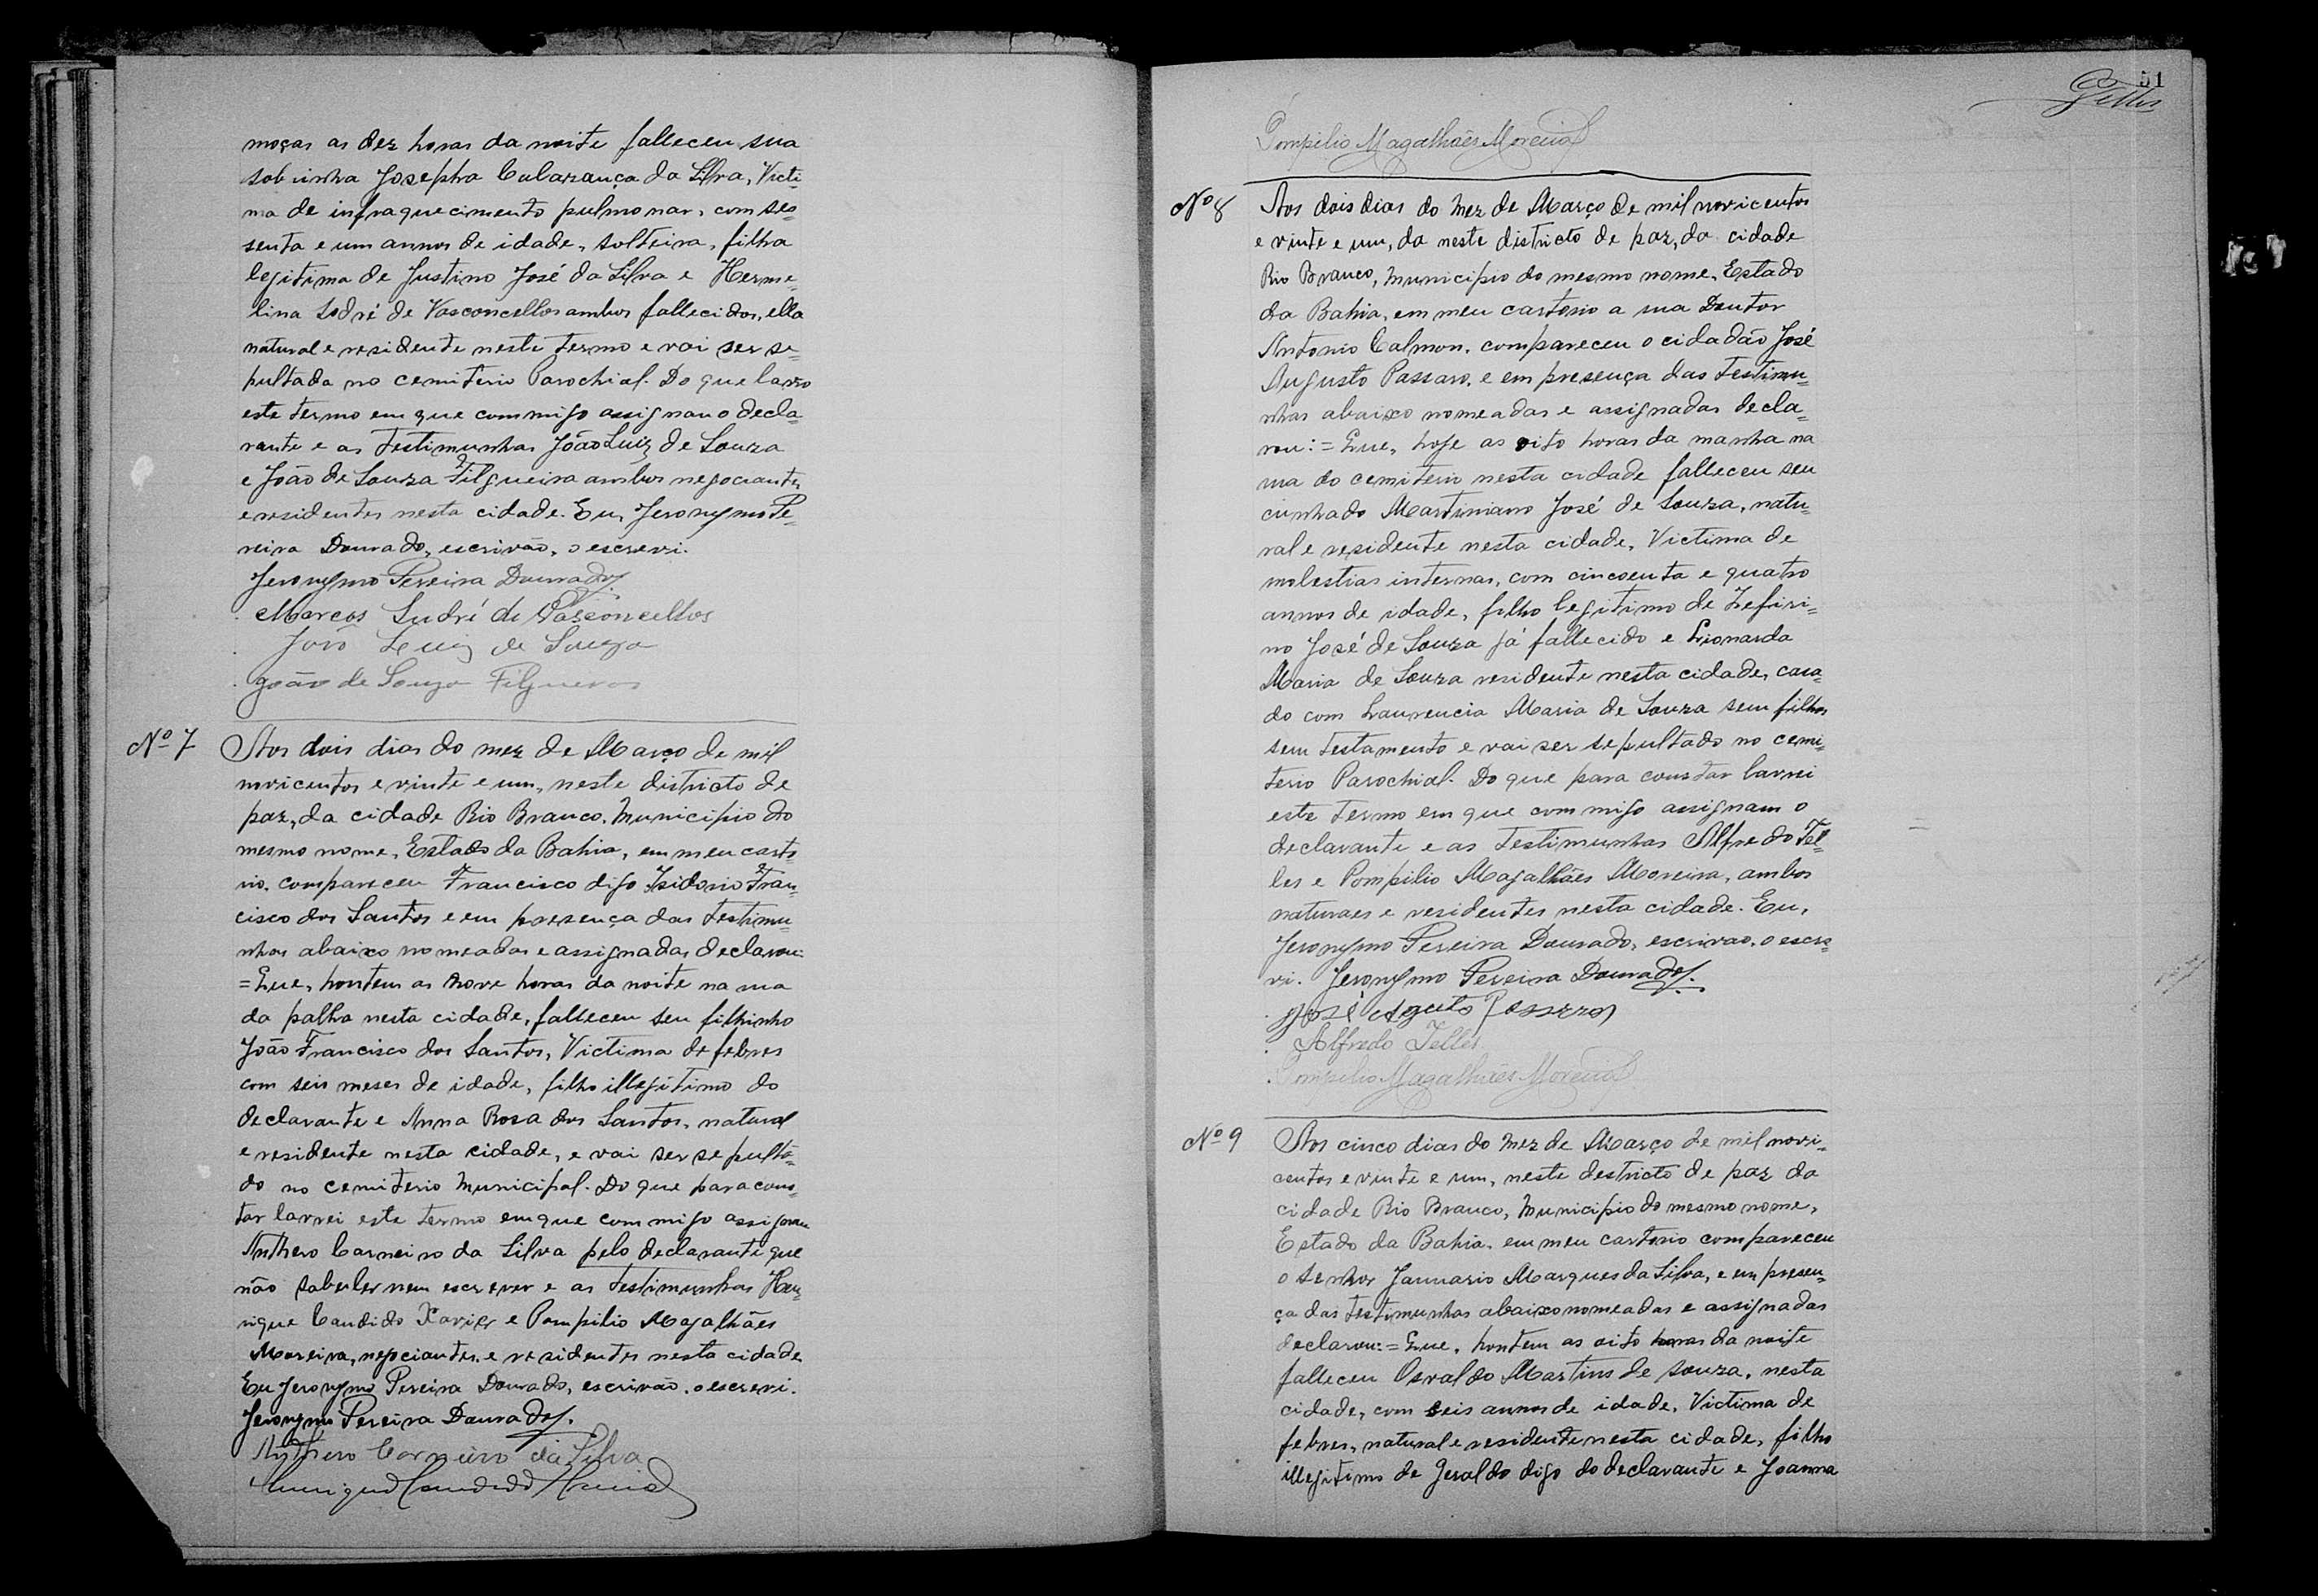 moças as dez horas da noite falleceu sua
sobrinha Josepha Calazança da Silva, Victi-
ma de infraquecimento pulmonar, com ses-
senta e um annos de idade, solteira, filha
legitima de Justino José da Silva e Herme-
lina Sodré de Vasconcellos ambos fallecidos, ella
natural e residente neste termo e vai ser se-
pultada no cemiterio Parochial. Do que lavro
este termo em que commigo assignan o decla-
rante e as testimunhas João Luiz de Souza
e João de Souza Filgueira ambos negociantes
e residentes nesta cidade. Eu, Jeronymo Pe-
reira Dourado, escrivão, o escrevi.
Jeronymo Pereira Dourado
Marcos Sudré de Vasconcellos
João Luiz de Souza
João de Souza Filgueras
Nº 7 Aos dois dias do mez de Março de mil
novicentos e vinte e um, neste districto de
paz, da cidade Rio Branco, Municipio do
mesmo nome, Estado da Bahia, em meu carto-
rio, compareceu Francisco digo Isidorio Fran-
cisco dos Santos e em presença das testimu-
nhas abaixo nomeadas e assignadas declarou:
=Que, hontem as nove horas da noite na rua
da palha nesta cidade, falleceu seu filhinho
João Francisco dos Santos, Victima de febres
com seis meses de idade, filho illegitimo do
declarante e Anna Rosa dos Santos, natural
e residente nesta cidade, e vai ser sepulta-
do no cemiterio Municipal. Do que para cons-
tar lavrei este termo em que commigo assignam
Anthero Carneiro da Silva pelo declarante que
não saber ler nem escrever e as testimunhas Hen-
rique Candido Xavier e Pompilio Magalhães
Moreira, negociantes e residentes nesta cidade
Eu Jeronymo Pereira Dourado, escrivão, o escrevi.
Jeronymo Pereira Dourado.
Anthero Carneiro da Silva
51
Telles
Pompilio Magalhães Moreira
Nº 8 Aos dois dias do Mez de Março de mil novicentos
e vinte e um, da neste districto de paz, da cidade
Rio Branco, Municipio do mesmo nome, Estado
da Bahia, em meu cartorio a rua Doutor
Antonio Calmon, compareceu o cidadão José
Augusto Passaro, e em presença das testimu-
nhas abaixo nomeadas e assignadas decla-
rou:= Que, hoje as oito horas da manha na
rua do cemiterio nesta cidade falleceu seu
cunhado Martiniano José de Souza, natu-
ral e residente nesta cidade, Victima de
molestias internas, com cincoenta e quatro
annos de idade, filho legitimo de Zefiri-
no José de Souza já fallecido e Lionarda
Maria de Souza residente nesta cidade, casa-
do com Laurencia Maria de Souza sem filhos
sem testamento e vai ser sepultado no cemi-
terio Parochial. Do que para constar lavrei
este termo em que commigo assignam o
declarante e as testimunhas Alfredo Tel-
les e Pompilio Magalhães Moreira, ambos
naturaes e residentes nesta cidade. Eu,
Jeronymo Pereira Dourado, escrivao, o escre-
vi. Jeronymo Pereira Dourado.
José Agusto Passaro
Alfredo Telles
Pompilio Magalhães Moreira
Nº 9 Aos cinco dias do Mez de Março de mil novi-
centos e vinte e um, neste destricto de paz da
cidade Rio Branco, Municipio do mesmo nome,
Estado da Bahia, em meu cartorio compareceu
o senhor Januario Marques da Silva, e em presen-
ça das testimunhas abaixo nomeadas e assignadas
declarou:= Que, hontem as oito horas da noite
falleceu Osvaldo Martins de Souza, nesta
cidade, com seis annos de idade, Victima de
febres, natural e residente nesta cidade, filho
illegitimo de Geraldo digo do declarante e Joanna